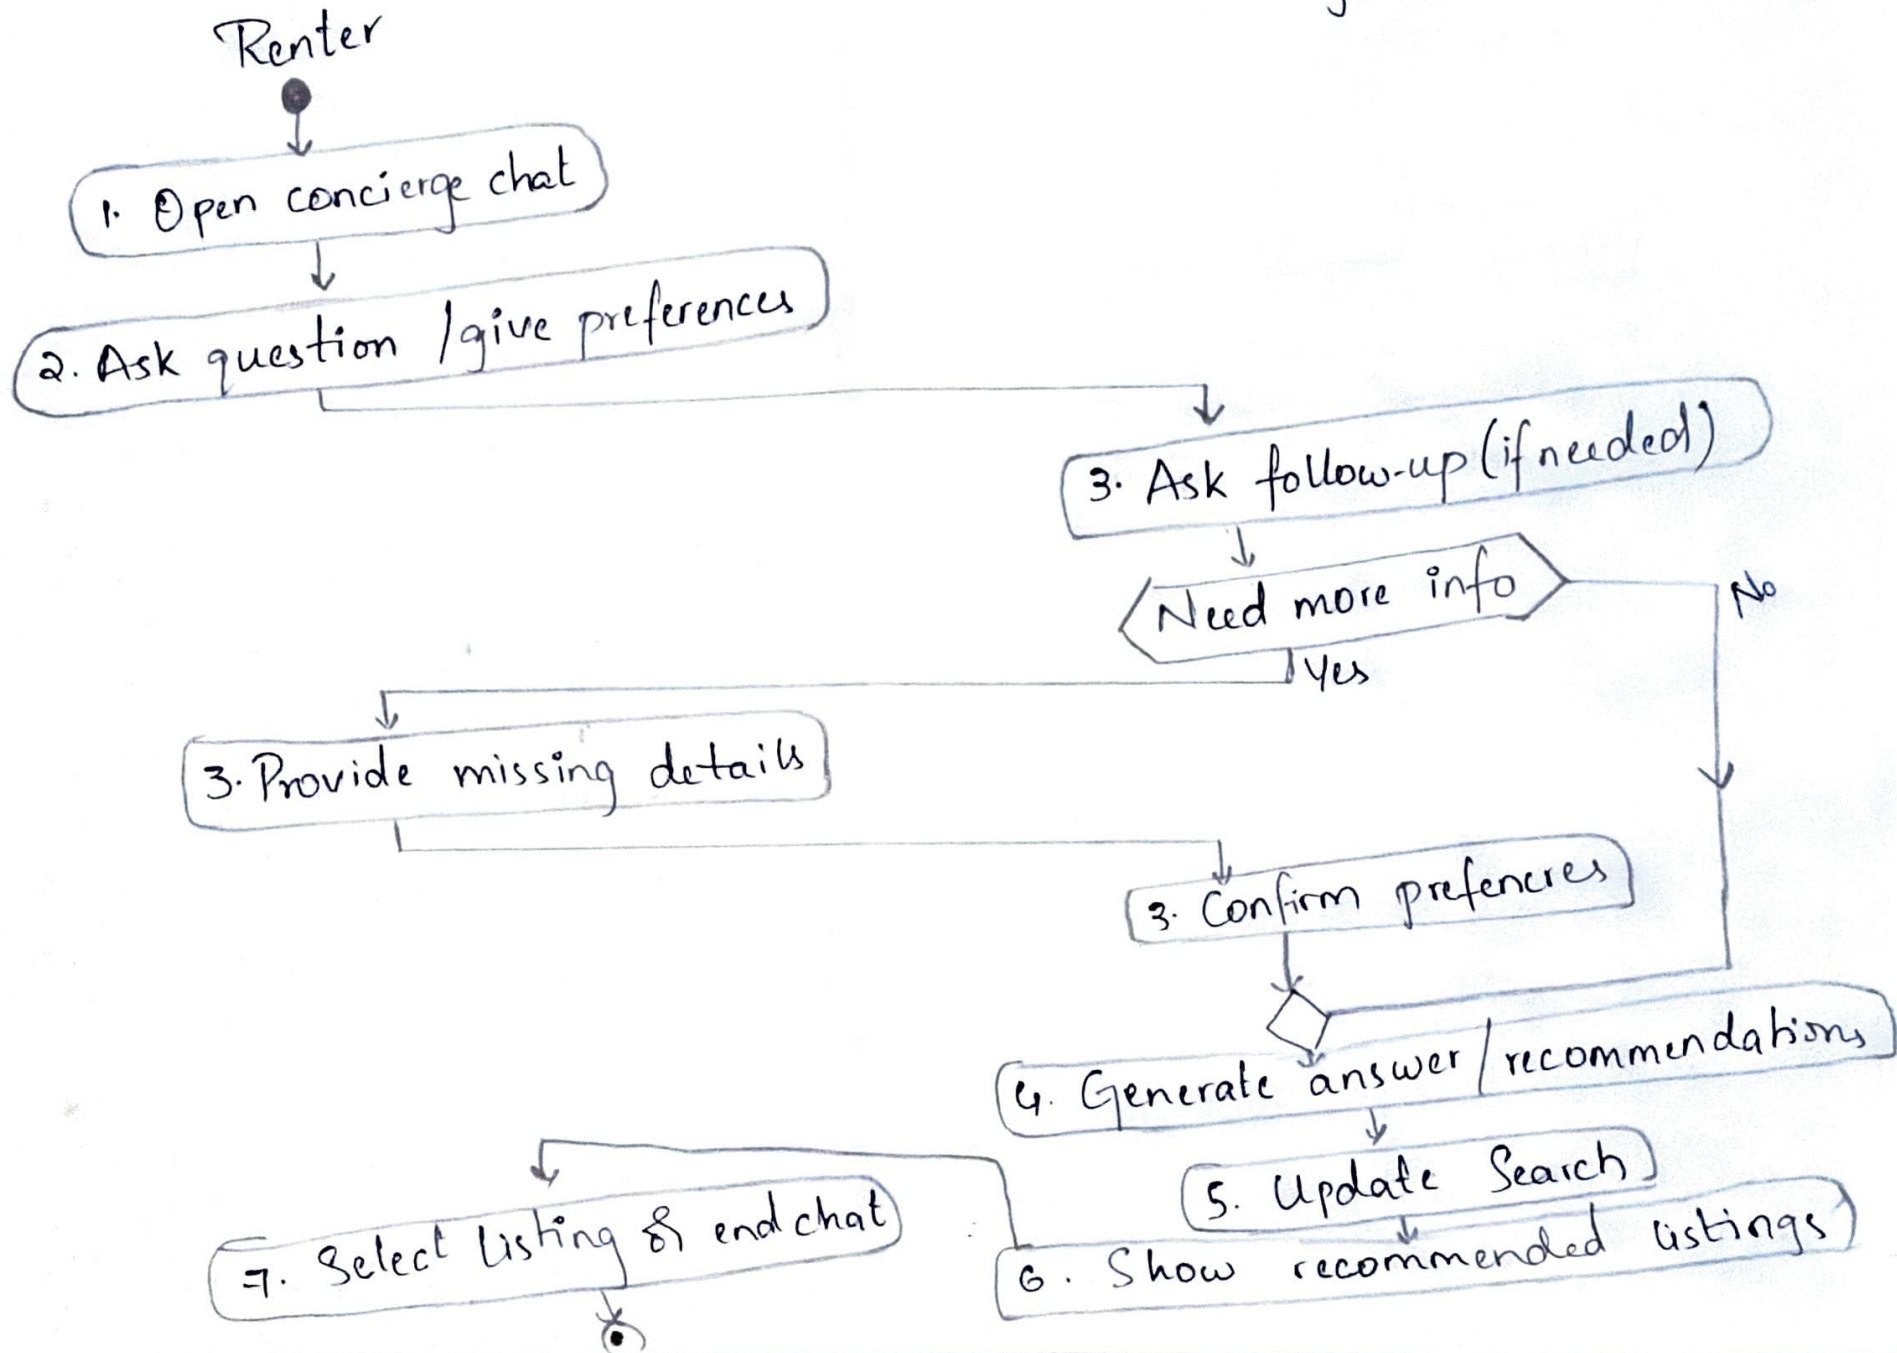 Renter
1. Open concierge chat
2. Ask question / give preferences
3. Ask follow-up (if needed)
Need more info
No
Yes
3. Provide missing details
3. Confirm prefencres
4. Generate answer / recommendations
5. Update Search
7. Select listing & end chat
6. Show recommended listings